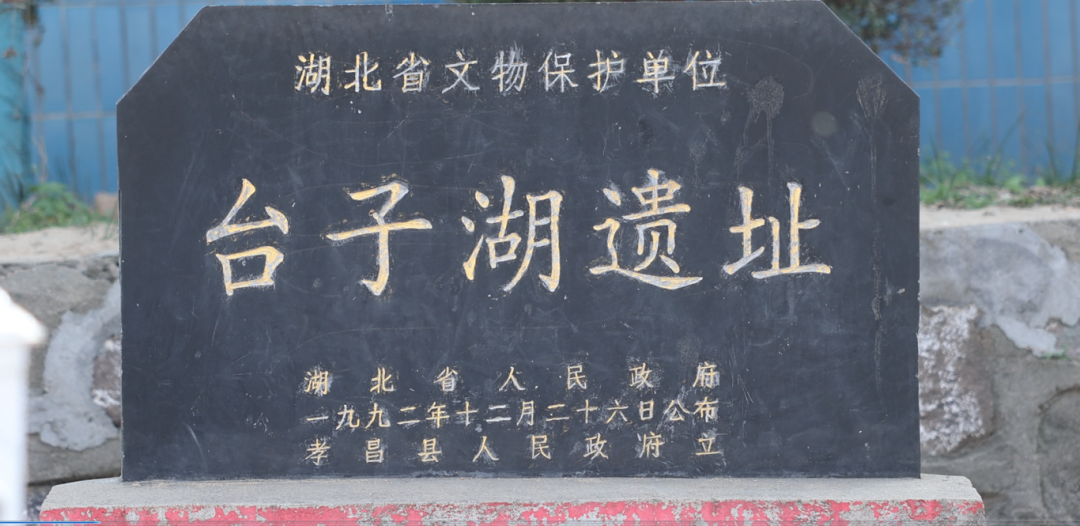 湖北省文物保护单位
台子湖遗址
湖北省人民政府
一九九二年十二月二十六日公布
孝昌县人民政府立